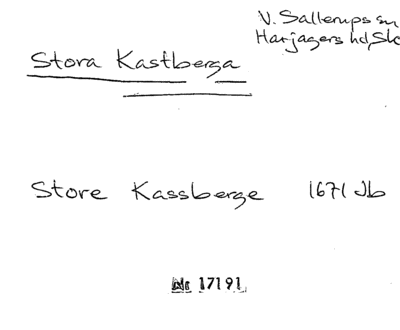 V. Sallerups sn
Harjagers hd, Sk
Stora Kastberga
Store Kassberge 1671 Jb
Nr 17191